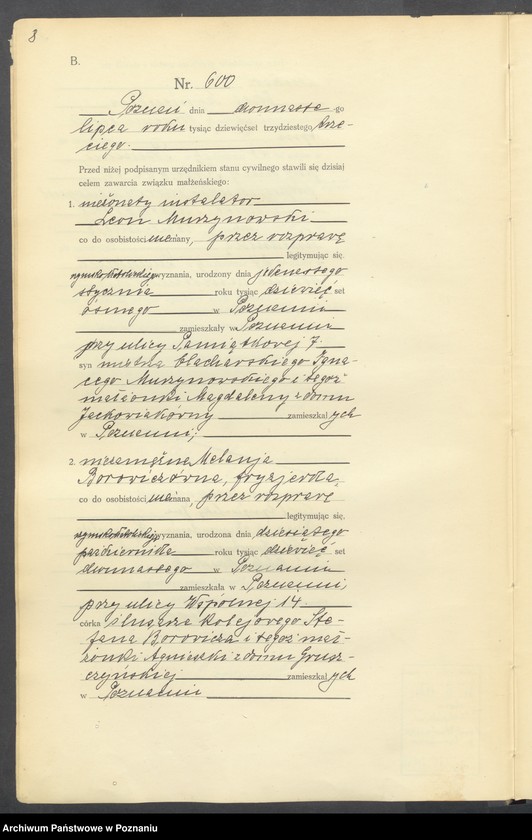 8
B.
Nr. 600
Poznań dnia dwunaste go
lipca roku tysiąc dziewięćset trzydziestego trze-
ciego.
Przed niżej podpisanym urzędnikiem stanu cywilnego stawili się dzisiaj
celem zawarcia związku małżeńskiego:
1. nieżonaty instalator
Leon Murzynowski
co do osobistości uznany, przez rozprawę
legitymując się,
rzymskokatolickiego wyznania, urodzony dnia jedenastego
stycznia roku tysiąc dziewięć set
ósmego w Poznaniu
zamieszkały w Poznaniu
przy ulicy Pamiątkowej 7.
syn mistrza blacharskiego Igna-
cego Murzynowskiego i tegoż
małżonki Magdaleny z domu
Jackowiakówny zamieszkał ych
w Poznaniu;
2. niezamężna Melanja
Borowiczówna, fryzjerka,
co do osobistości uznana, przez rozprawę
legitymując się,
rzymskokatolickiego wyznania, urodzona dnia dziesiątego
października roku tysiąc dziewięć set
dwunastego w Poznaniu
zamieszkała w Poznaniu,
przy ulicy Wspólnej 14
córka ślusarza kolejowego Ste-
fana Borowicza i tegoż mał-
żonki Agnieszki z domu Grusz-
czyńskiej zamieszkał ych
w Poznaniu
Archiwum Państwowe w Poznaniu